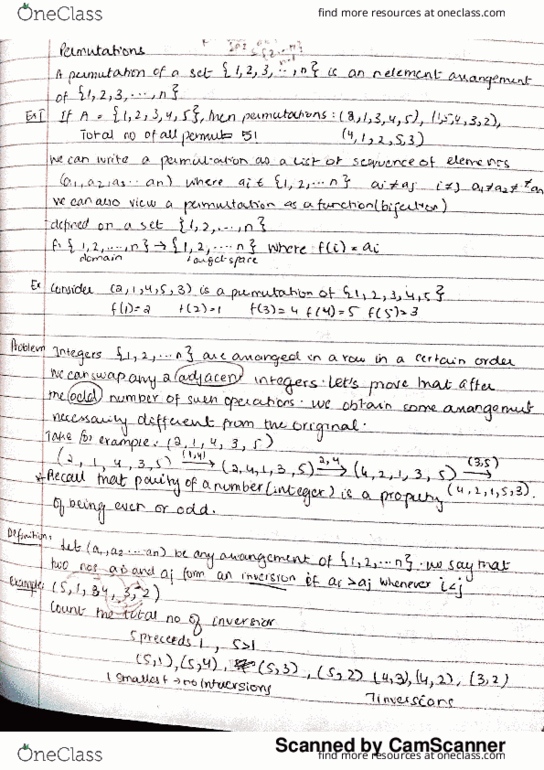 OneClass
find more resources at oneclass.com
Permutations
A permutation of a set {1,2,3,..,n} is an n element arrangement
of {1,2,3,...,n}
Ex1 If A = {1,2,3,4,5}, then permutations: (2,1,3,4,5), (1,5,4,3,2),
Total no of all permut = 5! (4,1,2,5,3)
We can write a permutation as a list or sequence of elements
(a1, a2, a3... an) where ai ∈ {1,2,...n} ai ≠ aj i≠j a1≠a2≠ ≠an
We can also view a permutation as a function (bijection)
defined on a set {1,2,...,n}
f: {1,2,...,n} → {1,2,...n} where f(i) = ai
domain target space
Ex Consider (2,1,4,5,3) is a permutation of {1,2,3,4,5}
f(1)=2 f(2)=1 f(3)=4 f(4)=5 f(5)=3
Problem Integers {1,2,...n} are arranged in a row in a certain order
We can swap any 2 adjacent integers. Let's prove that after
the odd number of such operations. We obtain some arrangement
necessarily different from the original.
Take for example: (2,1,4,3,5)
(2,1,4,3,5) (1,4)→ (2,4,1,3,5) 2,4→ (4,2,1,3,5) (3,5)→
* Recall that parity of a number (integer) is a property (4,2,1,5,3).
of being ever or odd.
Definition: Let (a1,a2...an) be any arrangement of {1,2,...n}. We say that
two nos ai and aj form an inversion if ai > aj whenever i<j
Example: (5,1, 4, 3, 2)
Count the total no of inversion
5 preceeds 1, 5>1
(5,1), (5,4), (5,3), (5,2) (4,3), (4,2), (3,2)
1 smallest → no inversions 7 inversions
Scanned by CamScanner
OneClass
find more resources at oneclass.com